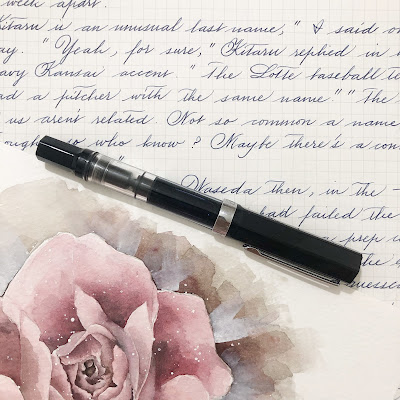 week apart.
Kitaru is an unusual last name," I said on
ay. "Yeah, for sure," Kitaru replied in h
avy Kansai accent. "The Lotte baseball te
ad a pitcher with the same name." "The
us aren't related. Not so common a name
ough, so who know? Maybe there's a con
Waseda then, in the
had failed the
a prep
the
messed